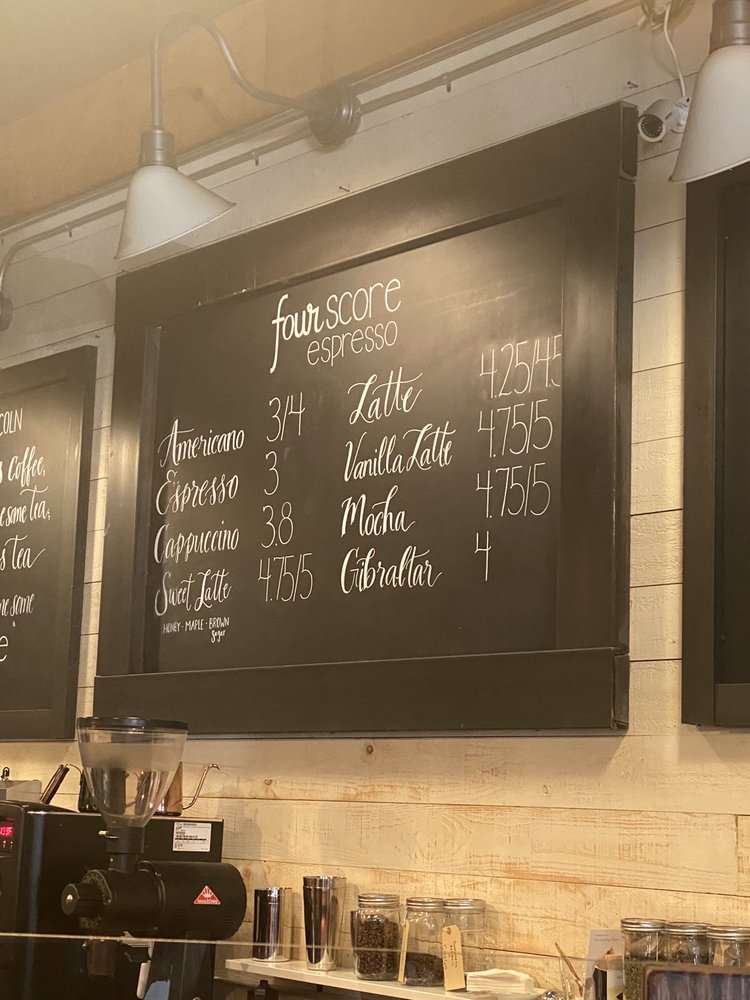 OLN
s coffee,
me some tea,
s tea
me some
e
four score
espresso
Americano 3/4
Espresso 3
Cappuccino 3.8
Sweet Latte 4.75/5
HONEY · MAPLE · BROWN
sugar
Latte 4.25/4.5
Vanilla Latte 4.75/5
Mocha 4.75/5
Gibraltar 4